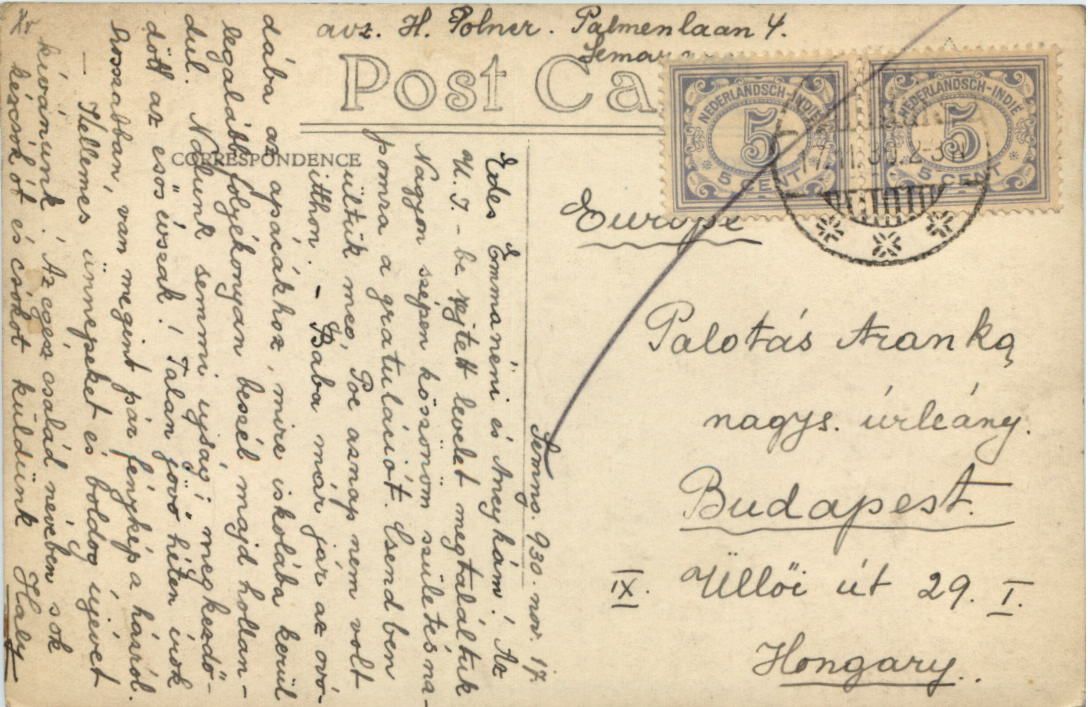 avz. H. Polner. Palmenlaan 4.
Post Ca
CORRESPONDENCE
NEDERLANDSCH-INDIE
5
5 CENT
NEDERLANDSCH-INDIE
5
5 CENT
Europe
Palotás Aranka
nagys. úrleány.
Budapest.
IX. Üllői út 29. I.
Hongary.
930. nov. 17.
Édes Emma néni és Ancykám! Az
U. I-be rejtett levelet megtaláltuk
Nagyon szépen köszönöm születésna-
pomra a gratulációt. Csendben
ültük meg, Poe aznap nem volt
itthon. - Baba már jár az óvó-
dába az apácákhoz, mire iskolába kerül
legalább folyékonyan beszél majd hollan-
dul. Nálunk semmi ujság; megkezdő-
dött az esős évszak! Talán jövő héten irok
hosszabban, van megint pár fénykép a házról.
- Kellemes ünnepeket és boldog újévet
kívánunk! Az egész család nevében sok
kézcsókot és csókot küldünk Haly